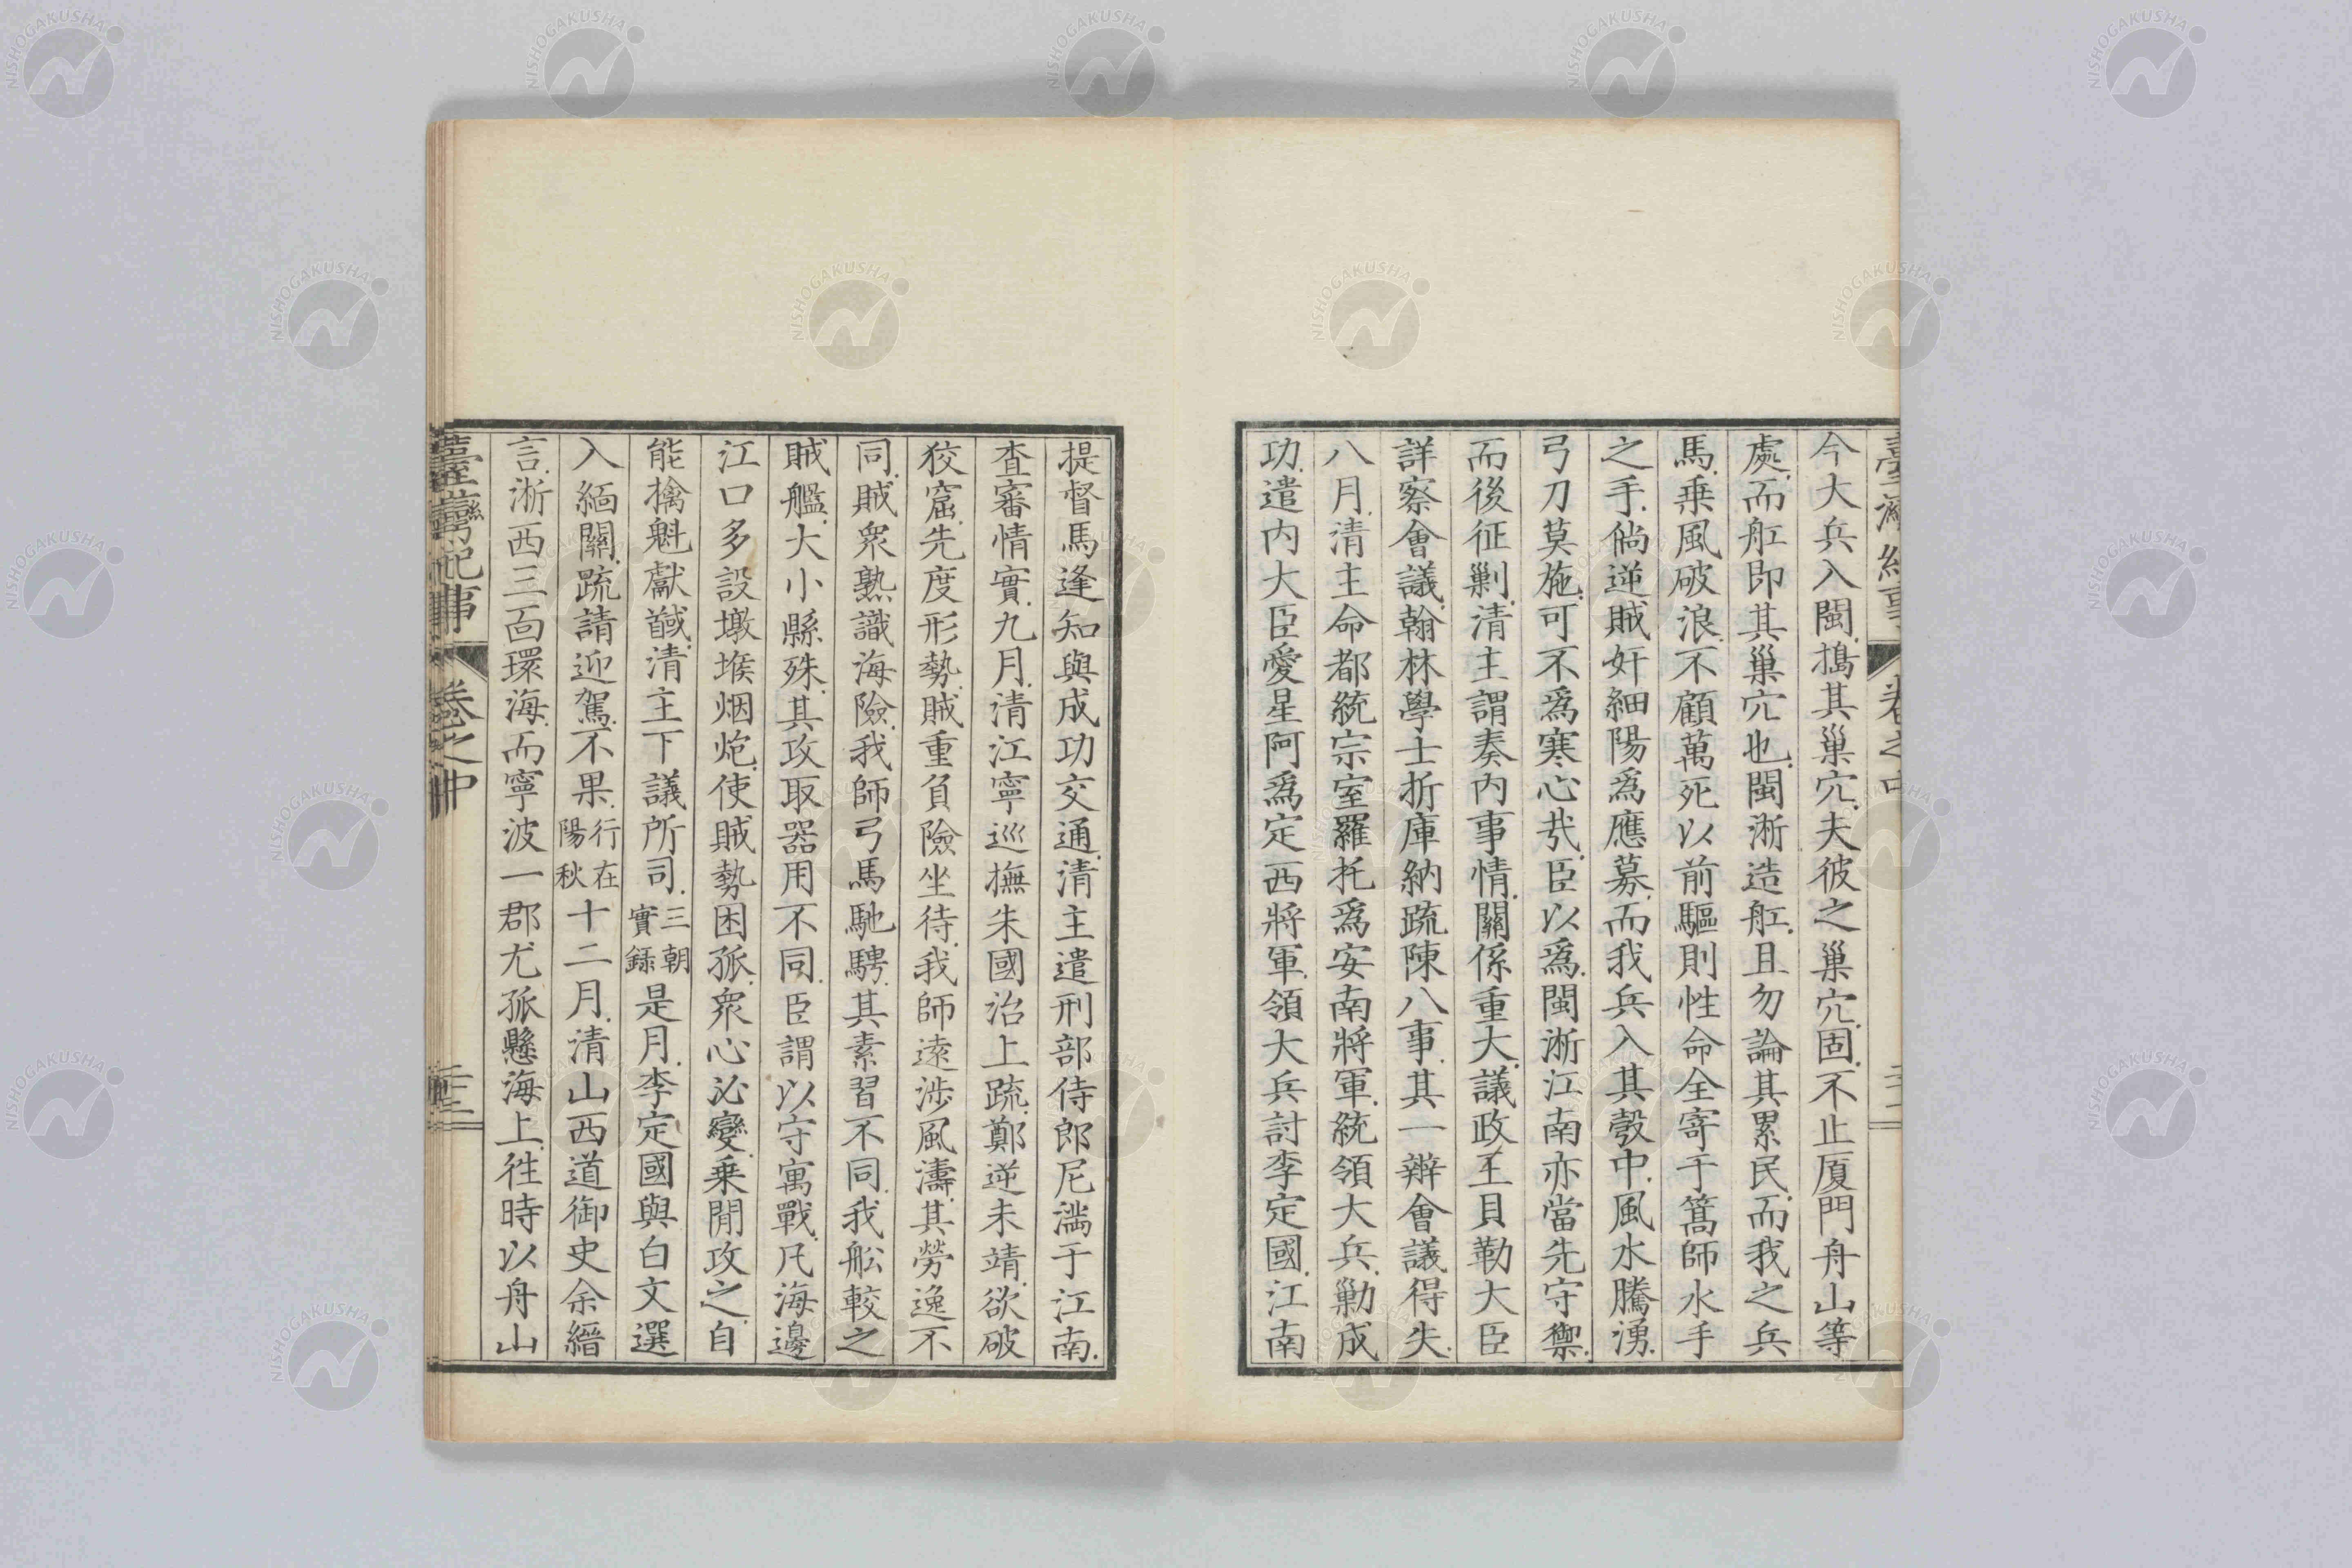 今大兵入閩搗其巢穴夫彼之巢穴固不止厦門舟山等
處而舡即其巢穴也閩淅造舡且勿論其累民而我之兵
馬乗風破浪不顧萬死以前驅則性命全寄于篙師水手
之手倘逆賊奸細陽爲應募而我兵入其彀中風水騰湧
弓刀莫施可不爲寒心哉臣以爲閩淅江南亦當先守禦
而後征剿清主謂奏内事情關係重大議政王貝勒大臣
詳察會議翰林學士折庫納疏陳八事其一辦會議得失
八月清主命都統宗室羅托爲安南將軍統領大兵勦成
功遣内大臣愛星阿爲定西將軍領大兵討李定國江南
提督馬逢知與成功交通清主遣刑部侍郎尼満于江南
査審情實九月清江寧巡撫朱國治上疏鄭逆未靖欲破
狡窟先度形勢賊重負險坐待我師遠涉風濤其勞逸不
同賊衆熟識海險我師弓馬馳騁其素習不同我舩較之
賊艦大小縣殊其攻取器用不同臣謂以守寓戰凡海邊
江口多設墩堠烟炮使賊勢困孤衆心必變乗閒攻之自
能擒魁獻馘清主下議所司三朝實録是月李定國與白文選
入緬關疏請迎駕不果行在陽秋十二月清山西道御史余縉
言淅西三面環海而寧波一郡尤孤懸海上徃時以舟山
臺灣紀事 卷之中